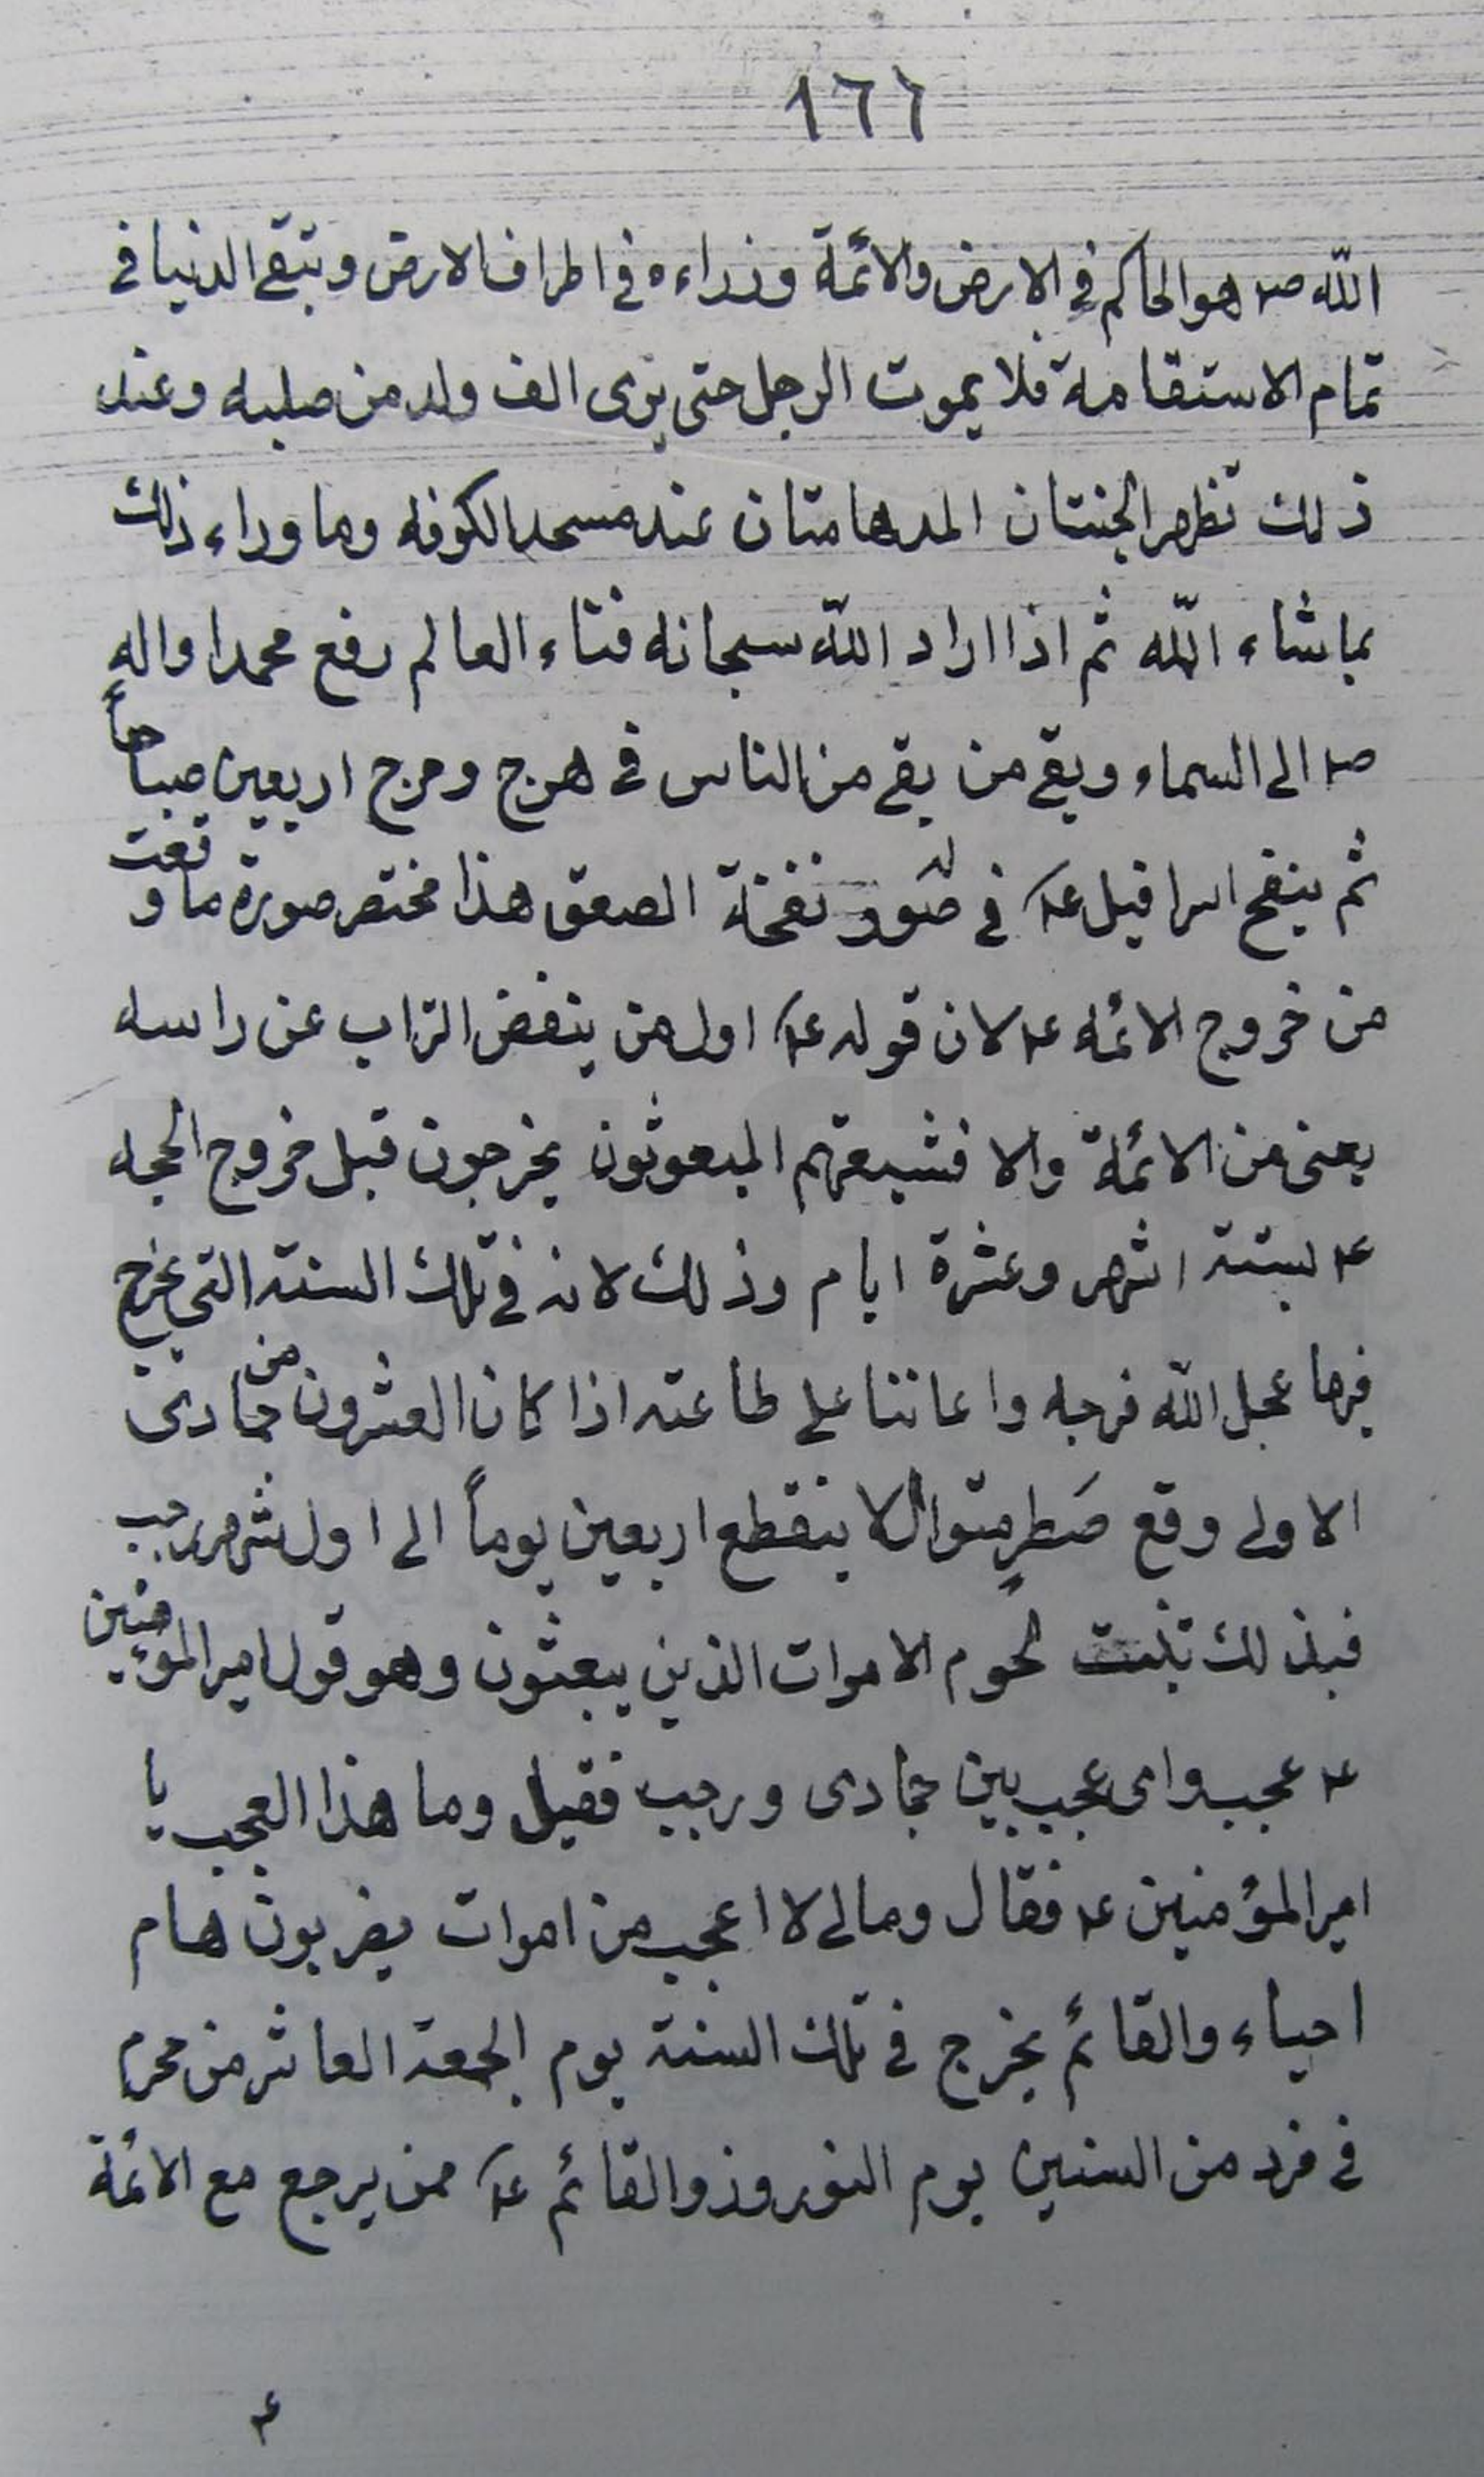 ١٦٦
الله ص هو الحاكم في الارض والائمة وزراءه في اطراف الارض وتبقى الدنيا في
تمام الاستقامة فلا يموت الرجل حتى يرى الف ولد من صلبه وعند
ذلك تظهر الجنتان المدهامتان عند مسجد الكوفه وما وراء ذلك
بما شاء الله ثم اذا اراد الله سبحانه فناء العالم رفع محمدا واله
ص الى السماء وبقى من بقى من الناس في هرج ومرج اربعين صباحاً
ثم ينفخ اسرافيل ع في صور نفخة الصعق هذا مختصر صورة ما وقعت
من خروج الائمه ع لان قوله ع اول من ينفض التراب عن راسه
يعنى من الائمة والا فشيعتهم المبعوثون يخرجون قبل خروج الحجه
ع بستة اشهر وعشرة ايام وذلك لانه في تلك السنة التي يخرج
فيها عجل الله فرجه واعاننا على طاعته اذا كان العشرون من جمادى
الاولى وقع مطر متوال لا ينقطع اربعين يوماً الى اول شهر رجب
فبذلك تنبت لحوم الاموات الذين يبعثون وهو قول امير المؤمنين
ع عجب واى عجب بين جمادى ورجب فقيل وما هذا العجب يا
امير المؤمنين ع فقال ومالى لا اعجب من اموات يضربون هام
احياء والقائم يخرج في تلك السنة يوم الجمعة العاشر من محرم
في فرد من السنين يوم النوروز والقائم ع ممن يرجع مع الائمة
ع